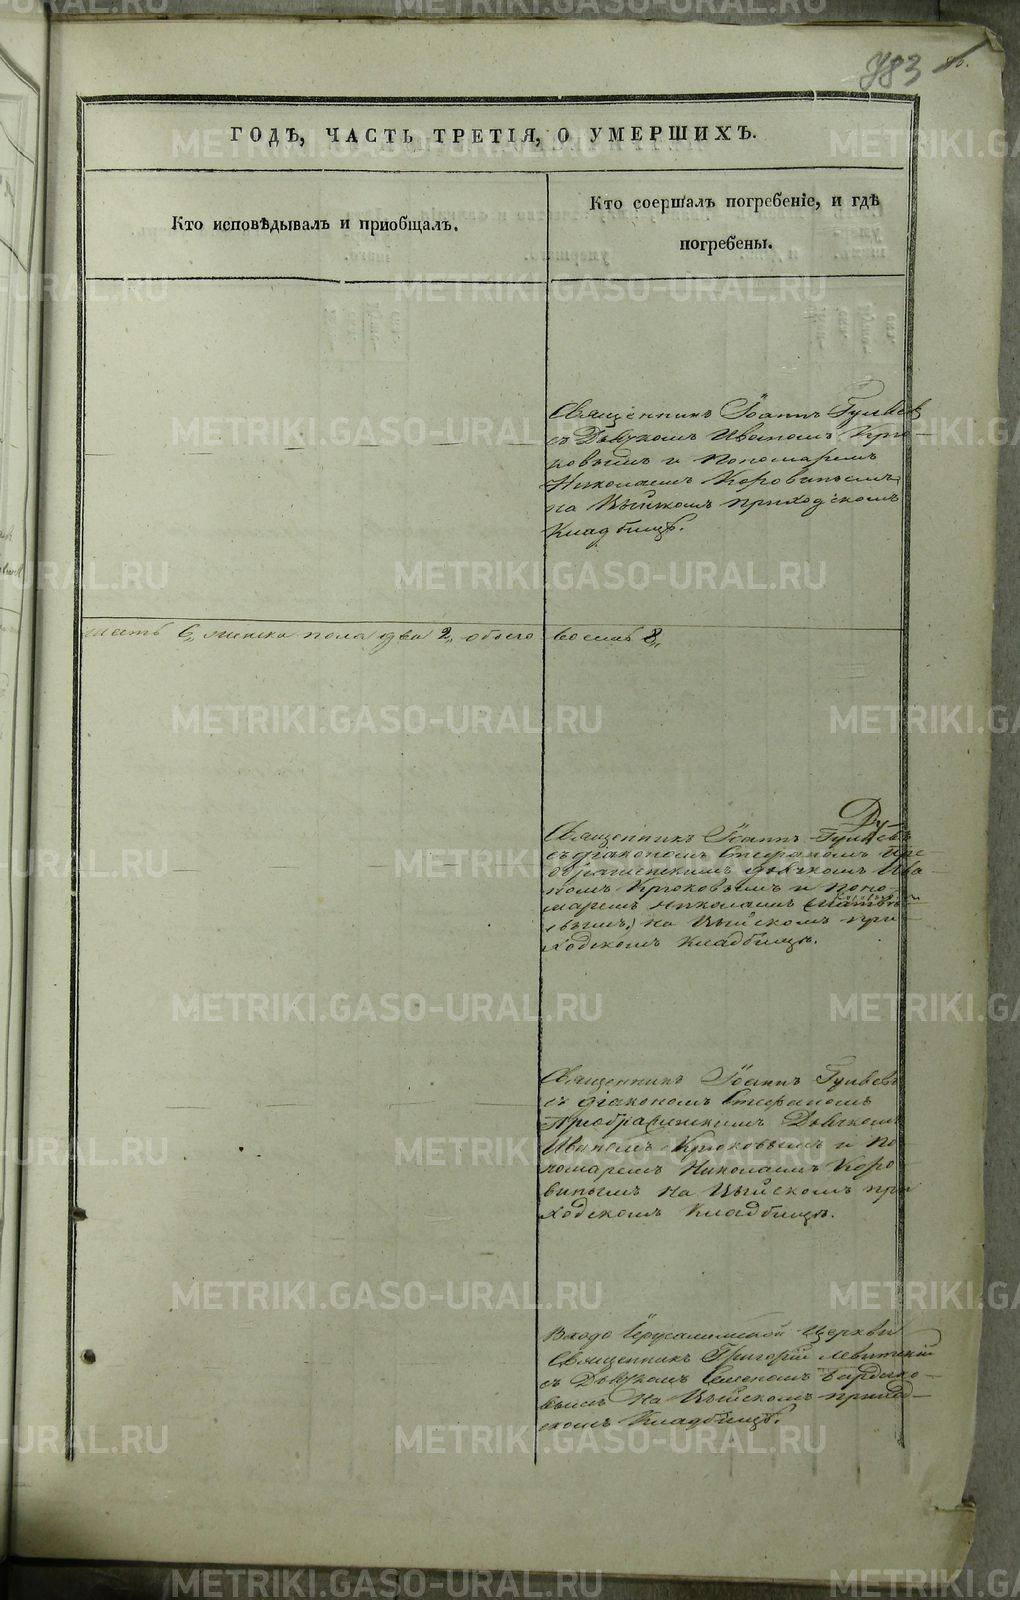 783
ГОДѢ, ЧАСТЬ ТРЕТІЯ, О УМЕРШИХЪ.
Кто исповѣдывалъ и приобщалъ.
Кто соершалъ погребеніе, и гдѣ
погребены.
Священникъ Іоаннъ
съ Дьячкомъ Иваномъ Крю-
ковымъ и Пономаремъ
Николаемъ Коровинымъ
на Выйскомъ приходскомъ
Кладбищѣ.
шесть 6, женска пола два 2, обоего восемь 8,
Священникъ Іоаннъ
съ діакономъ Стефаномъ Пре-
ображенскимъ дьячкомъ Ива-
номъ Крюковымъ и поно-
маремъ Николаемъ
на Выйскомъ при-
ходскомъ кладбищѣ.
Священникъ Іоаннъ
съ діакономъ Стефаномъ
Преображенскимъ Дьячкомъ
Иваномъ Крюковымъ и По-
номаремъ Николаемъ Коро-
винымъ на Выйскомъ при-
ходскомъ Кладбищѣ.
Входо Іерусалимской церкви
Священникъ Григорій Левитскій
съ Дьячкомъ Семеномъ
на Выйскомъ приход-
скомъ Кладбищѣ.
METRIKI.GASO-URAL.RU